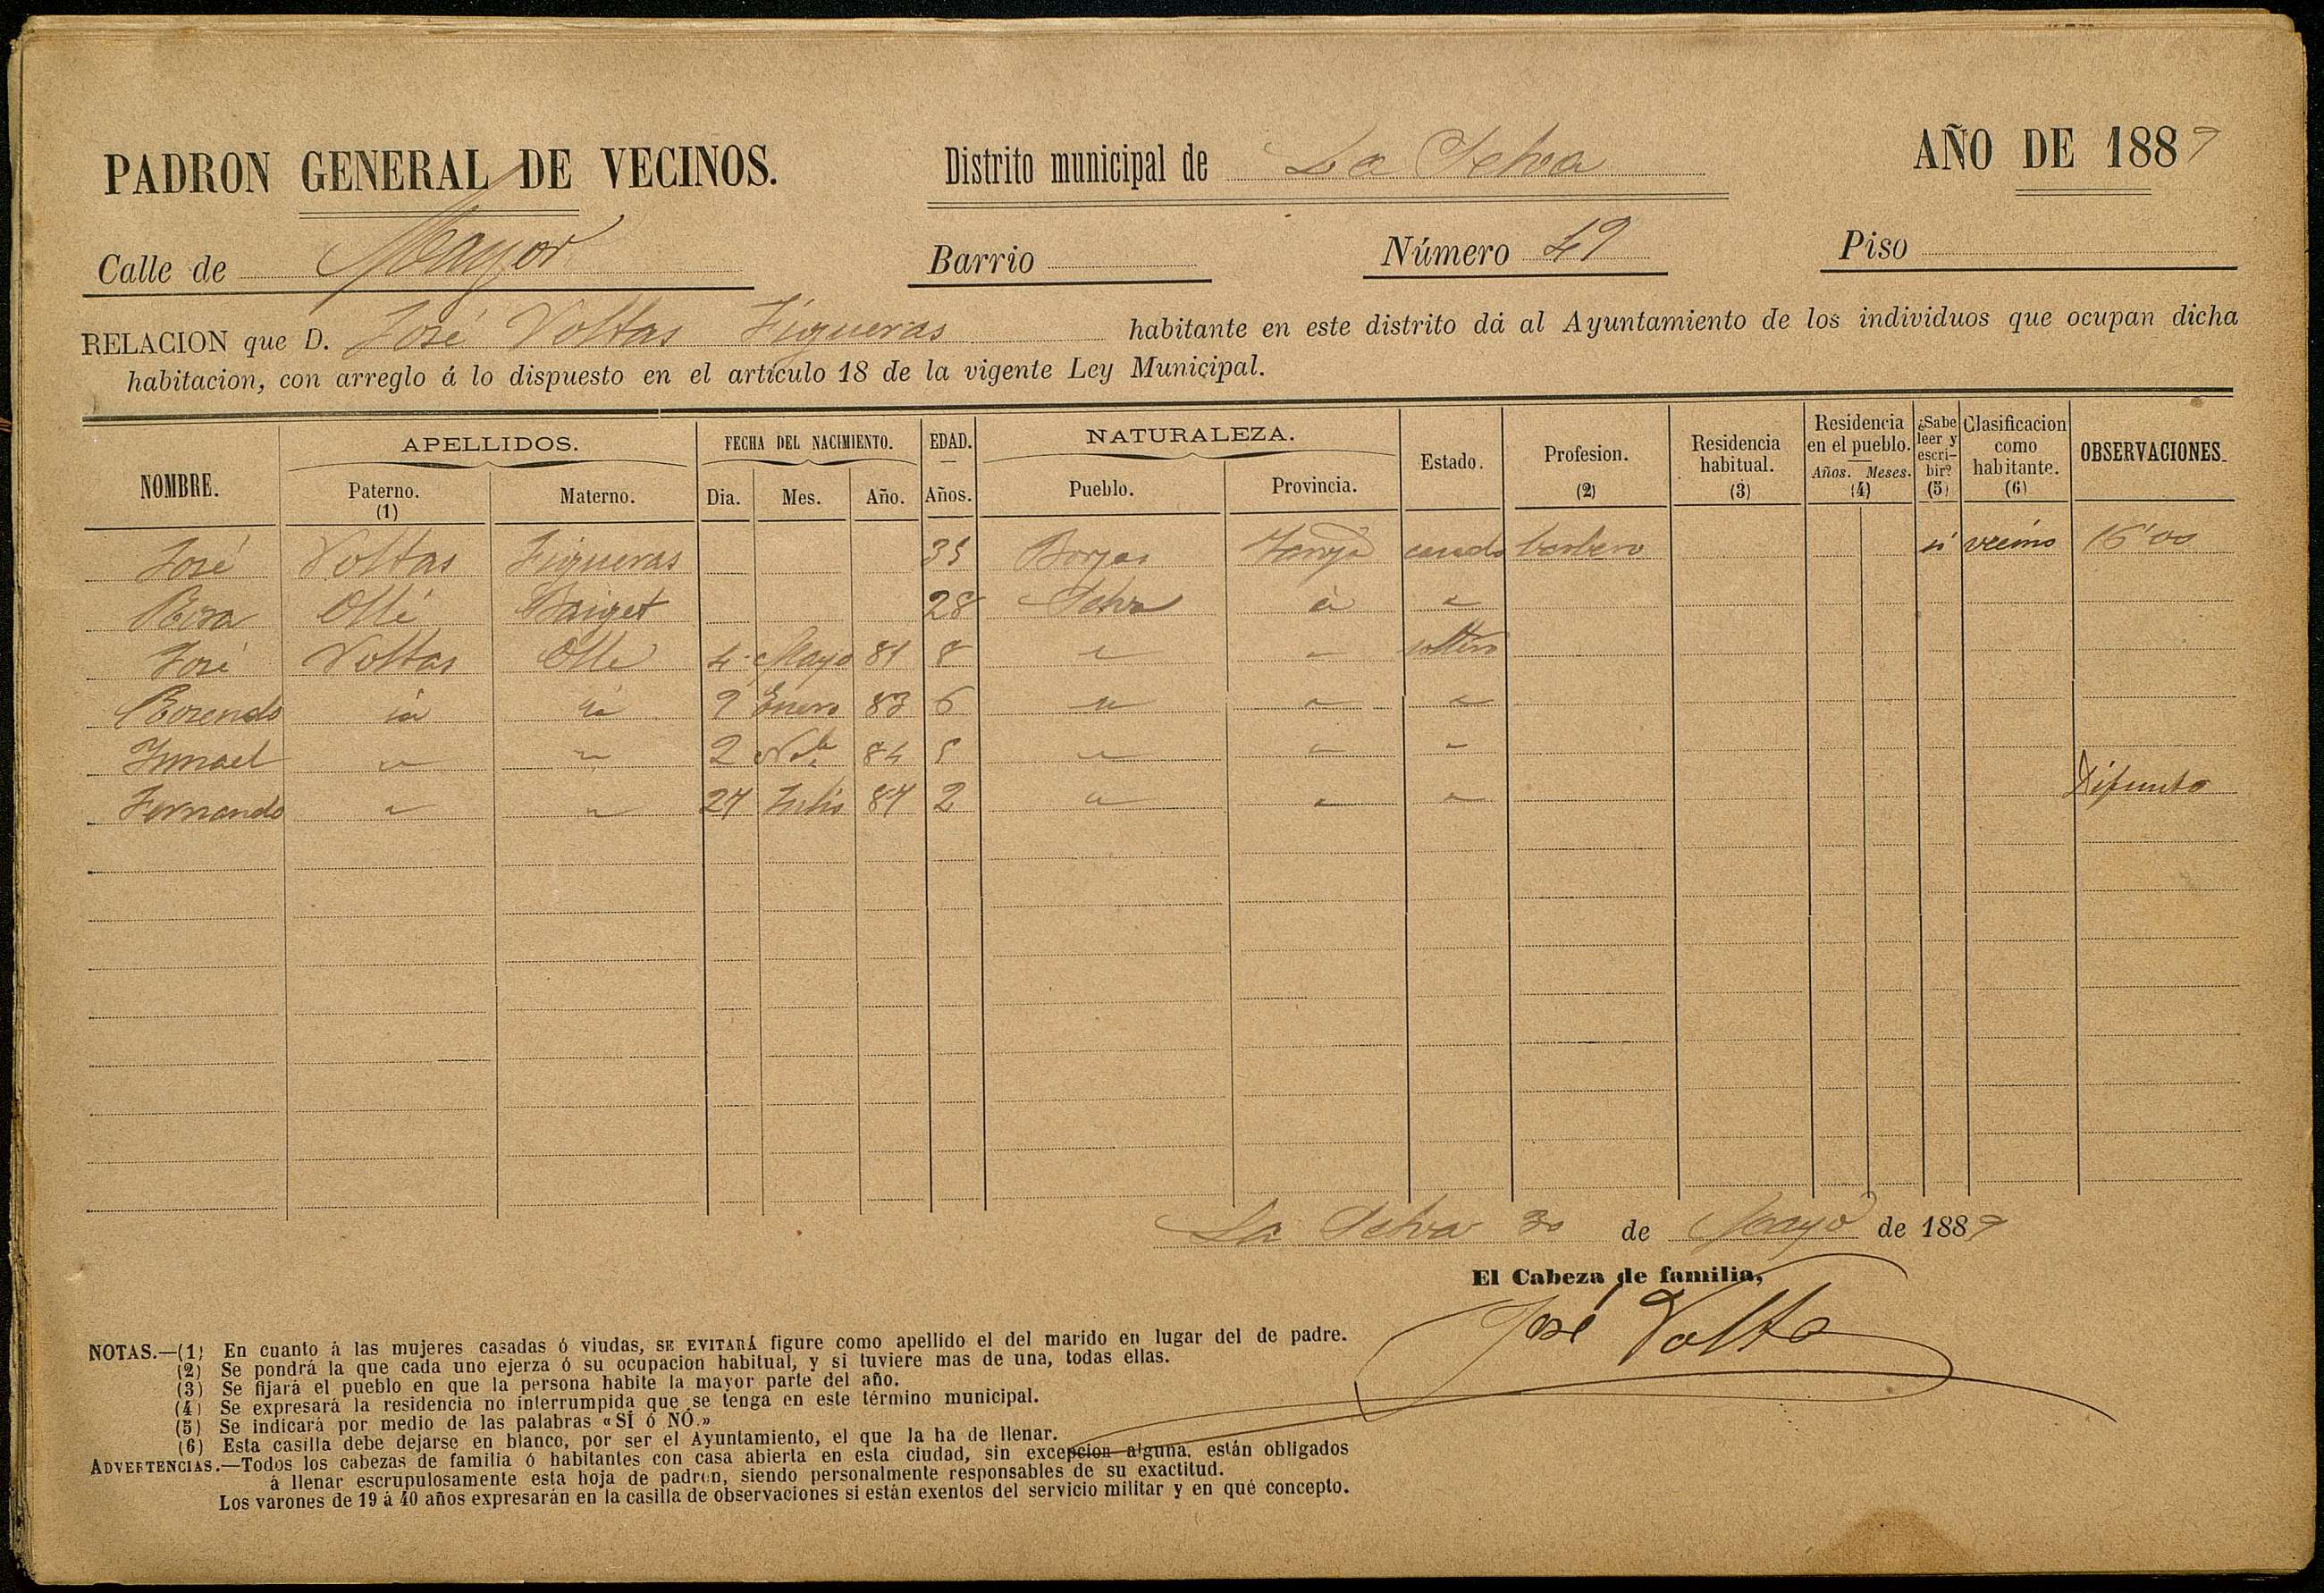 PADRON GENERAL DE VECINOS. Distrito municipal de La Selva AÑO DE 1889
Calle de Mayor Barrio Número 49 Piso
RELACION que D. José Voltas Figueras habitante en este distrito dá al Ayuntamiento de los individuos que ocupan dicha
habitacion, con arreglo á lo dispuesto en el artículo 18 de la vigente Ley Municipal.
NOMBRE. APELLIDOS. FECHA DEL NACIMIENTO. EDAD. NATURALEZA. Estado. Profesion. (2) Residencia habitual. (3) Residencia en el pueblo. ¿Sabe leer y escribir? (5) Clasificacion como habitante. (6) OBSERVACIONES.
Paterno. (1) Materno. Dia. Mes. Año. Años. Pueblo. Provincia. Años. Meses. (4)
José Voltas Figueras 35 Borjas casado barbero si vecino 16'00
Rosa Ollé Baiget 28 Selva id "
José Voltas Olle 4 Mayo 81 8 " " soltero
Rosendo id id 9 Enero 83 6 " " "
Ismael " " 2 Nbe 84 5 " " "
Fernando " " 27 Julio 87 2 " " " Difunto
La Selva 30 de Mayo de 1889
El Cabeza de familia,
José Volta
NOTAS.—(1) En cuanto á las mujeres casadas ó viudas, SE EVITARÁ figure como apellido el del marido en lugar del de padre.
(2) Se pondrá la que cada uno ejerza ó su ocupacion habitual, y si tuviere mas de una, todas ellas.
(3) Se fijará el pueblo en que la persona habite la mayor parte del año.
(4) Se expresará la residencia no interrumpida que se tenga en este término municipal.
(5) Se indicará por medio de las palabras «SÍ ó NÓ.»
(6) Esta casilla debe dejarse en blanco, por ser el Ayuntamiento, el que la ha de llenar.
ADVERTENCIAS.—Todos los cabezas de familia ó habitantes con casa abierta en esta ciudad, sin excepcion alguna, están obligados
á llenar escrupulosamente esta hoja de padron, siendo personalmente responsables de su exactitud.
Los varones de 19 á 40 años expresarán en la casilla de observaciones si están exentos del servicio militar y en qué concepto.